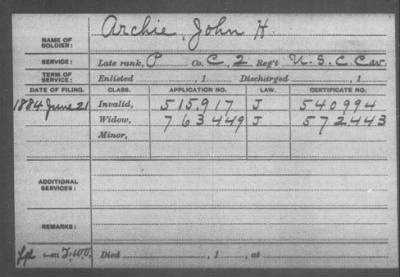 NAME OF SOLDIER: Archie, John H.
SERVICE: Late rank, P Co. C, 2 Reg't U.S.C. Cav.
TERM OF SERVICE: Enlisted , 1 Discharged , 1
DATE OF FILING. CLASS. APPLICATION NO. LAW. CERTIFICATE NO.
1884 June 21 Invalid, 515,917 J 540994
Widow, 763449 J 572443
Minor,
ADDITIONAL SERVICES:
REMARKS:
Died , 1 , at